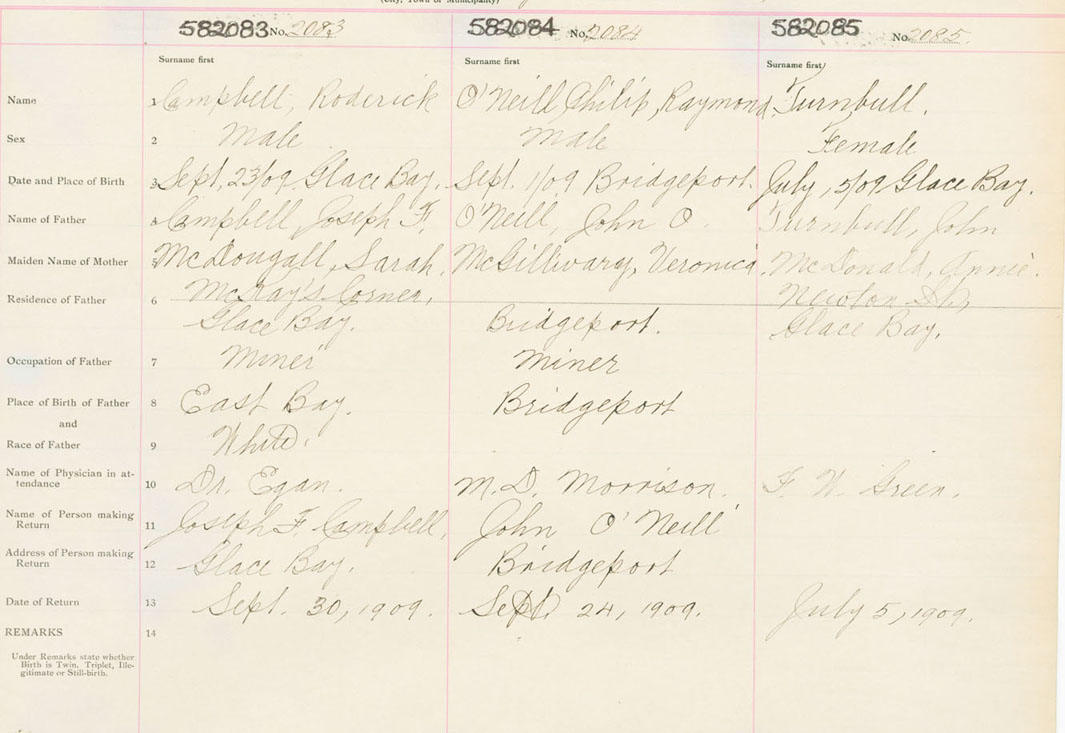 (City, Town or Municipality)
582083 No. 2083 582084 No. 2084 582085 No. 2085.
Surname first Surname first Surname first
Name 1 Campbell, Roderick O'Neill Philip, Raymond, Turnbull.
Sex 2 Male Male Female
Date and Place of Birth 3 Sept, 23/09 Glace Bay. Sept. 1/09 Bridgeport. July, 5/09 Glace Bay.
Name of Father 4 Campbell, Joseph F. O'Neill, John O. Turnbull, John
Maiden Name of Mother 5 McDougall, Sarah, McGillivary, Veronica. McDonald, Annie.
McKay's Corner, Newton St.,
Residence of Father 6 Glace Bay. Bridgeport. Glace Bay.
Occupation of Father 7 Miner Miner
Place of Birth of Father 8 East Bay. Bridgeport
and
Race of Father 9 White.
Name of Physician in at-
tendance 10 Dr. Egan. M.D. Morrison. F. W. Green.
Name of Person making
Return 11 Joseph F. Campbell, John O'Neill
Address of Person making
Return 12 Glace Bay. Bridgeport
Date of Return 13 Sept. 30, 1909. Sept. 24, 1909. July 5, 1909.
REMARKS 14
Under Remarks state whether
Birth is Twin, Triplet, Ille-
gitimate or Still-birth.